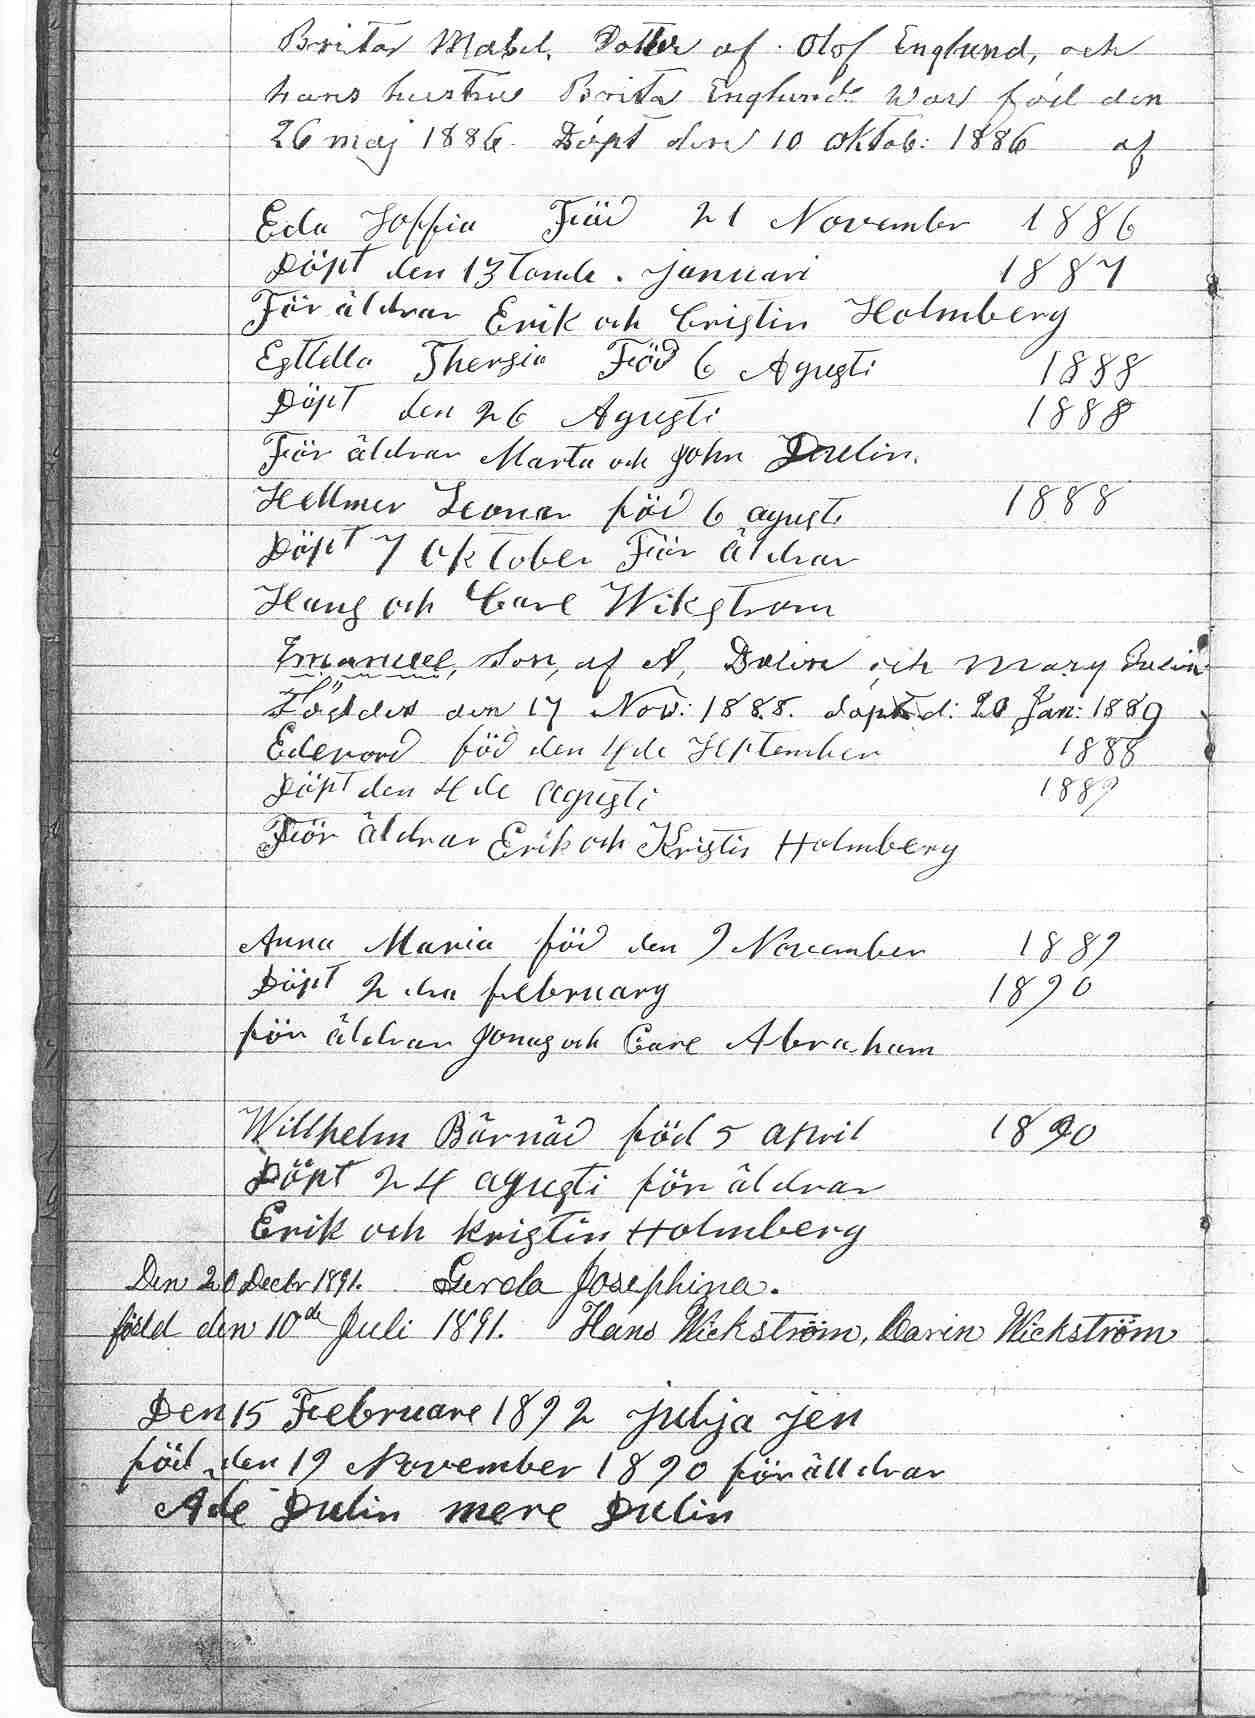 Brita Mabel, Dotter af Olof Englund, och
hans hustru Brita Englund War föd den
26 maj 1886. Döpt den 10 Oktob: 1886 af
Eda Soffia Föd 21 November 1886
Döpt den 13 tande. januari 1887
För äldrar Erik och Cristin Holmberg
Esttella Thersia Föd 6 Agusti 1888
Döpt den 26 Agusti 1888
För äldrar Marta och john Dulin.
Hellmer Leonar föd 6 agusti 1888
Döpt 7 Oktober För äldrar
Hans och Care Wikstrom
Emanuel, Son, af A, Dulin och Mary Dulin
Föddes den 17 Nov: 1888. döpt d: 20 Jan: 1889
Edevard föd den 4de September 1888
Döpt den 4 de agusti 1889
För äldrar Erik och Kristin Holmberg
Anna Maria föd den 9 November 1889
Döpt 2 dra february 1890
för äldrar Jonas och Care Abraham
Willhelm Bärnäd föd 5 april 1890
Döpt 24 agusti för äldrar
Erik och kristin Holmberg
Den 20 Decbr 1891. Gerda Josephina.
född den 10de Juli 1891. Hans Wickström, Carin Wickström
Den 15 Februare 1892 julja jen
föd den 19 November 1890 föräldrar
Ade Dulin mere Dulin